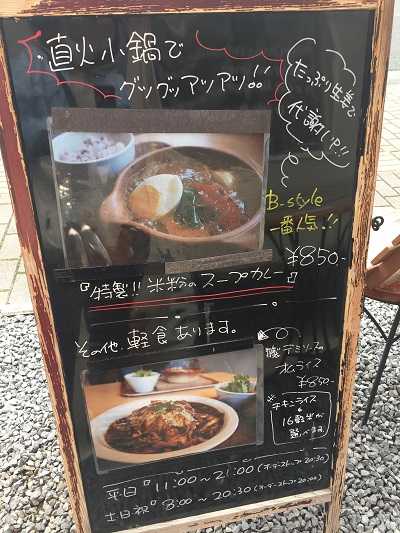 直火小鍋で
グツグツアツアツ!!
たっぷり生姜で
代謝UP!!
B-style
一番人気!!
¥850-
『特製!! 米粉のスープカレー』
その他 軽食あります。
デミソースの
オムライス
¥850-
※チキンライス
16穀米が
選べます
平日 11:00～21:00 (オーダーストップ 20:30)
土日祝 8:00～20:30 (オーダーストップ 20:00)